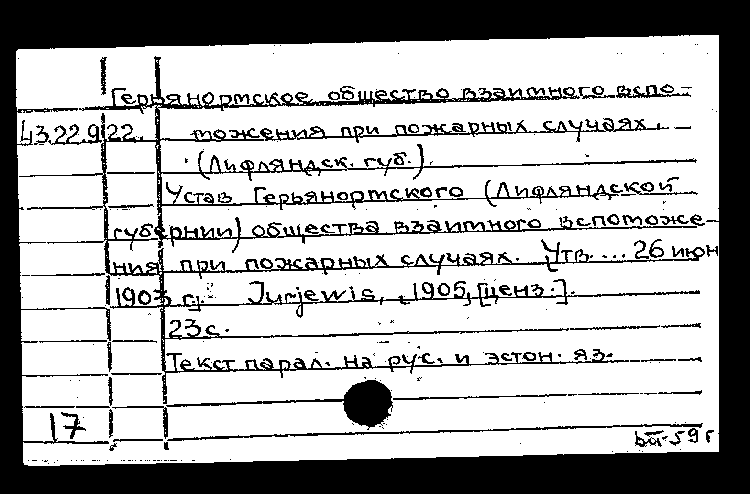 Герьянортское общество взаимного вспо-
43.22.922. можения при пожарных случаях.
(Лифляндск. губ.).
Устав Герьянортского (Лифляндской
губернии) общества взаимного вспоможе-
ния при пожарных случаях. Утв. ... 26 июн
1903 г. Jurjewis, 1905, [ценз.].
23 с.
Текст парал. на рус. и эстон. яз.
17
59 г